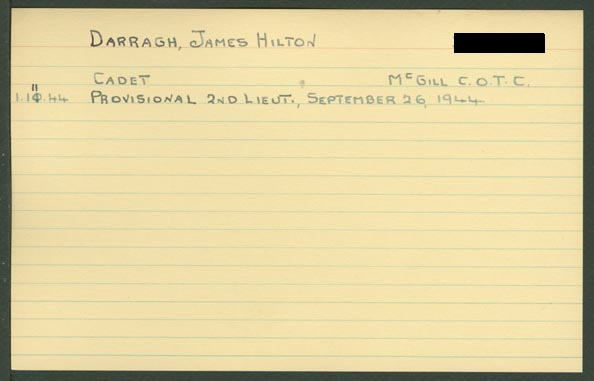 DARRAGH, JAMES HILTON
CADET McGILL C.O.T.C.
1.11.44 PROVISIONAL 2ND LIEUT., SEPTEMBER 26, 1944